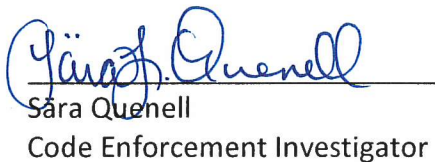 Sära L. Quenell
Sära Quenell
Code Enforcement Investigator